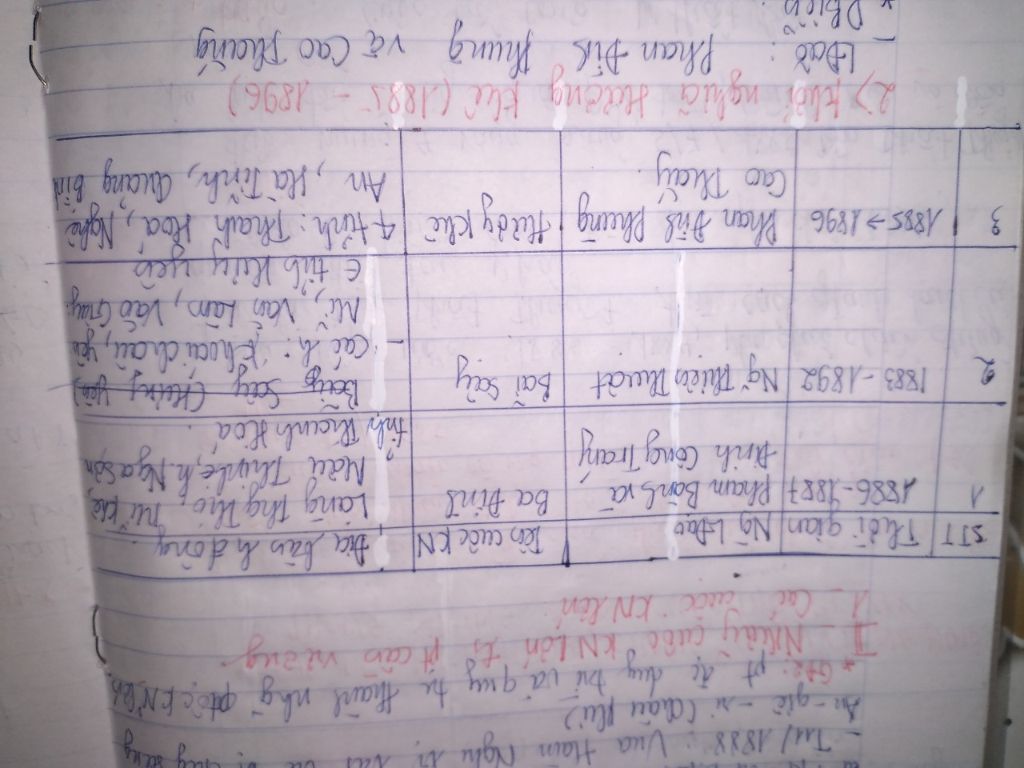 - T11/1888: Vua Hàm Nghi bị bắt
An-giê-ri (Châu Phi)
* Gđ2: pt đc duy trì và quy tụ thành nhg cuộc KN lớn.
II- Nhữg cuộc KN lớn tg pt cần vương
1- Các cuộc KN lớn
STT Thời gian Ng L.đạo Tên cuộc KN Địa bàn h động
1 1886-1887 Phạm Bành và Đinh Công Tráng Ba Đình Làng Thg Thọ, Mĩ Khê, Mậu Thịnh, h Nga Sơn tỉnh Thanh Hoá.
2 1883-1892 Ng Thiện Thuật Bãi Sậy Bãi Sậy (Hưng Yên)
- Các h: Khoái Châu, Yên Mĩ, Văn Lâm, Văn Giang
∈ tỉnh Hưng Yên
3 1885→1896 Phan Đình Phùng Cao Thắng Hương Khê 4 tỉnh: Thanh Hoá, Nghệ An, Hà Tĩnh, Quảng Bình
2) Khởi nghĩa Hương Khê (1885 - 1896)
L.Đạo: Phan Đình Phùng và Cao Thắng